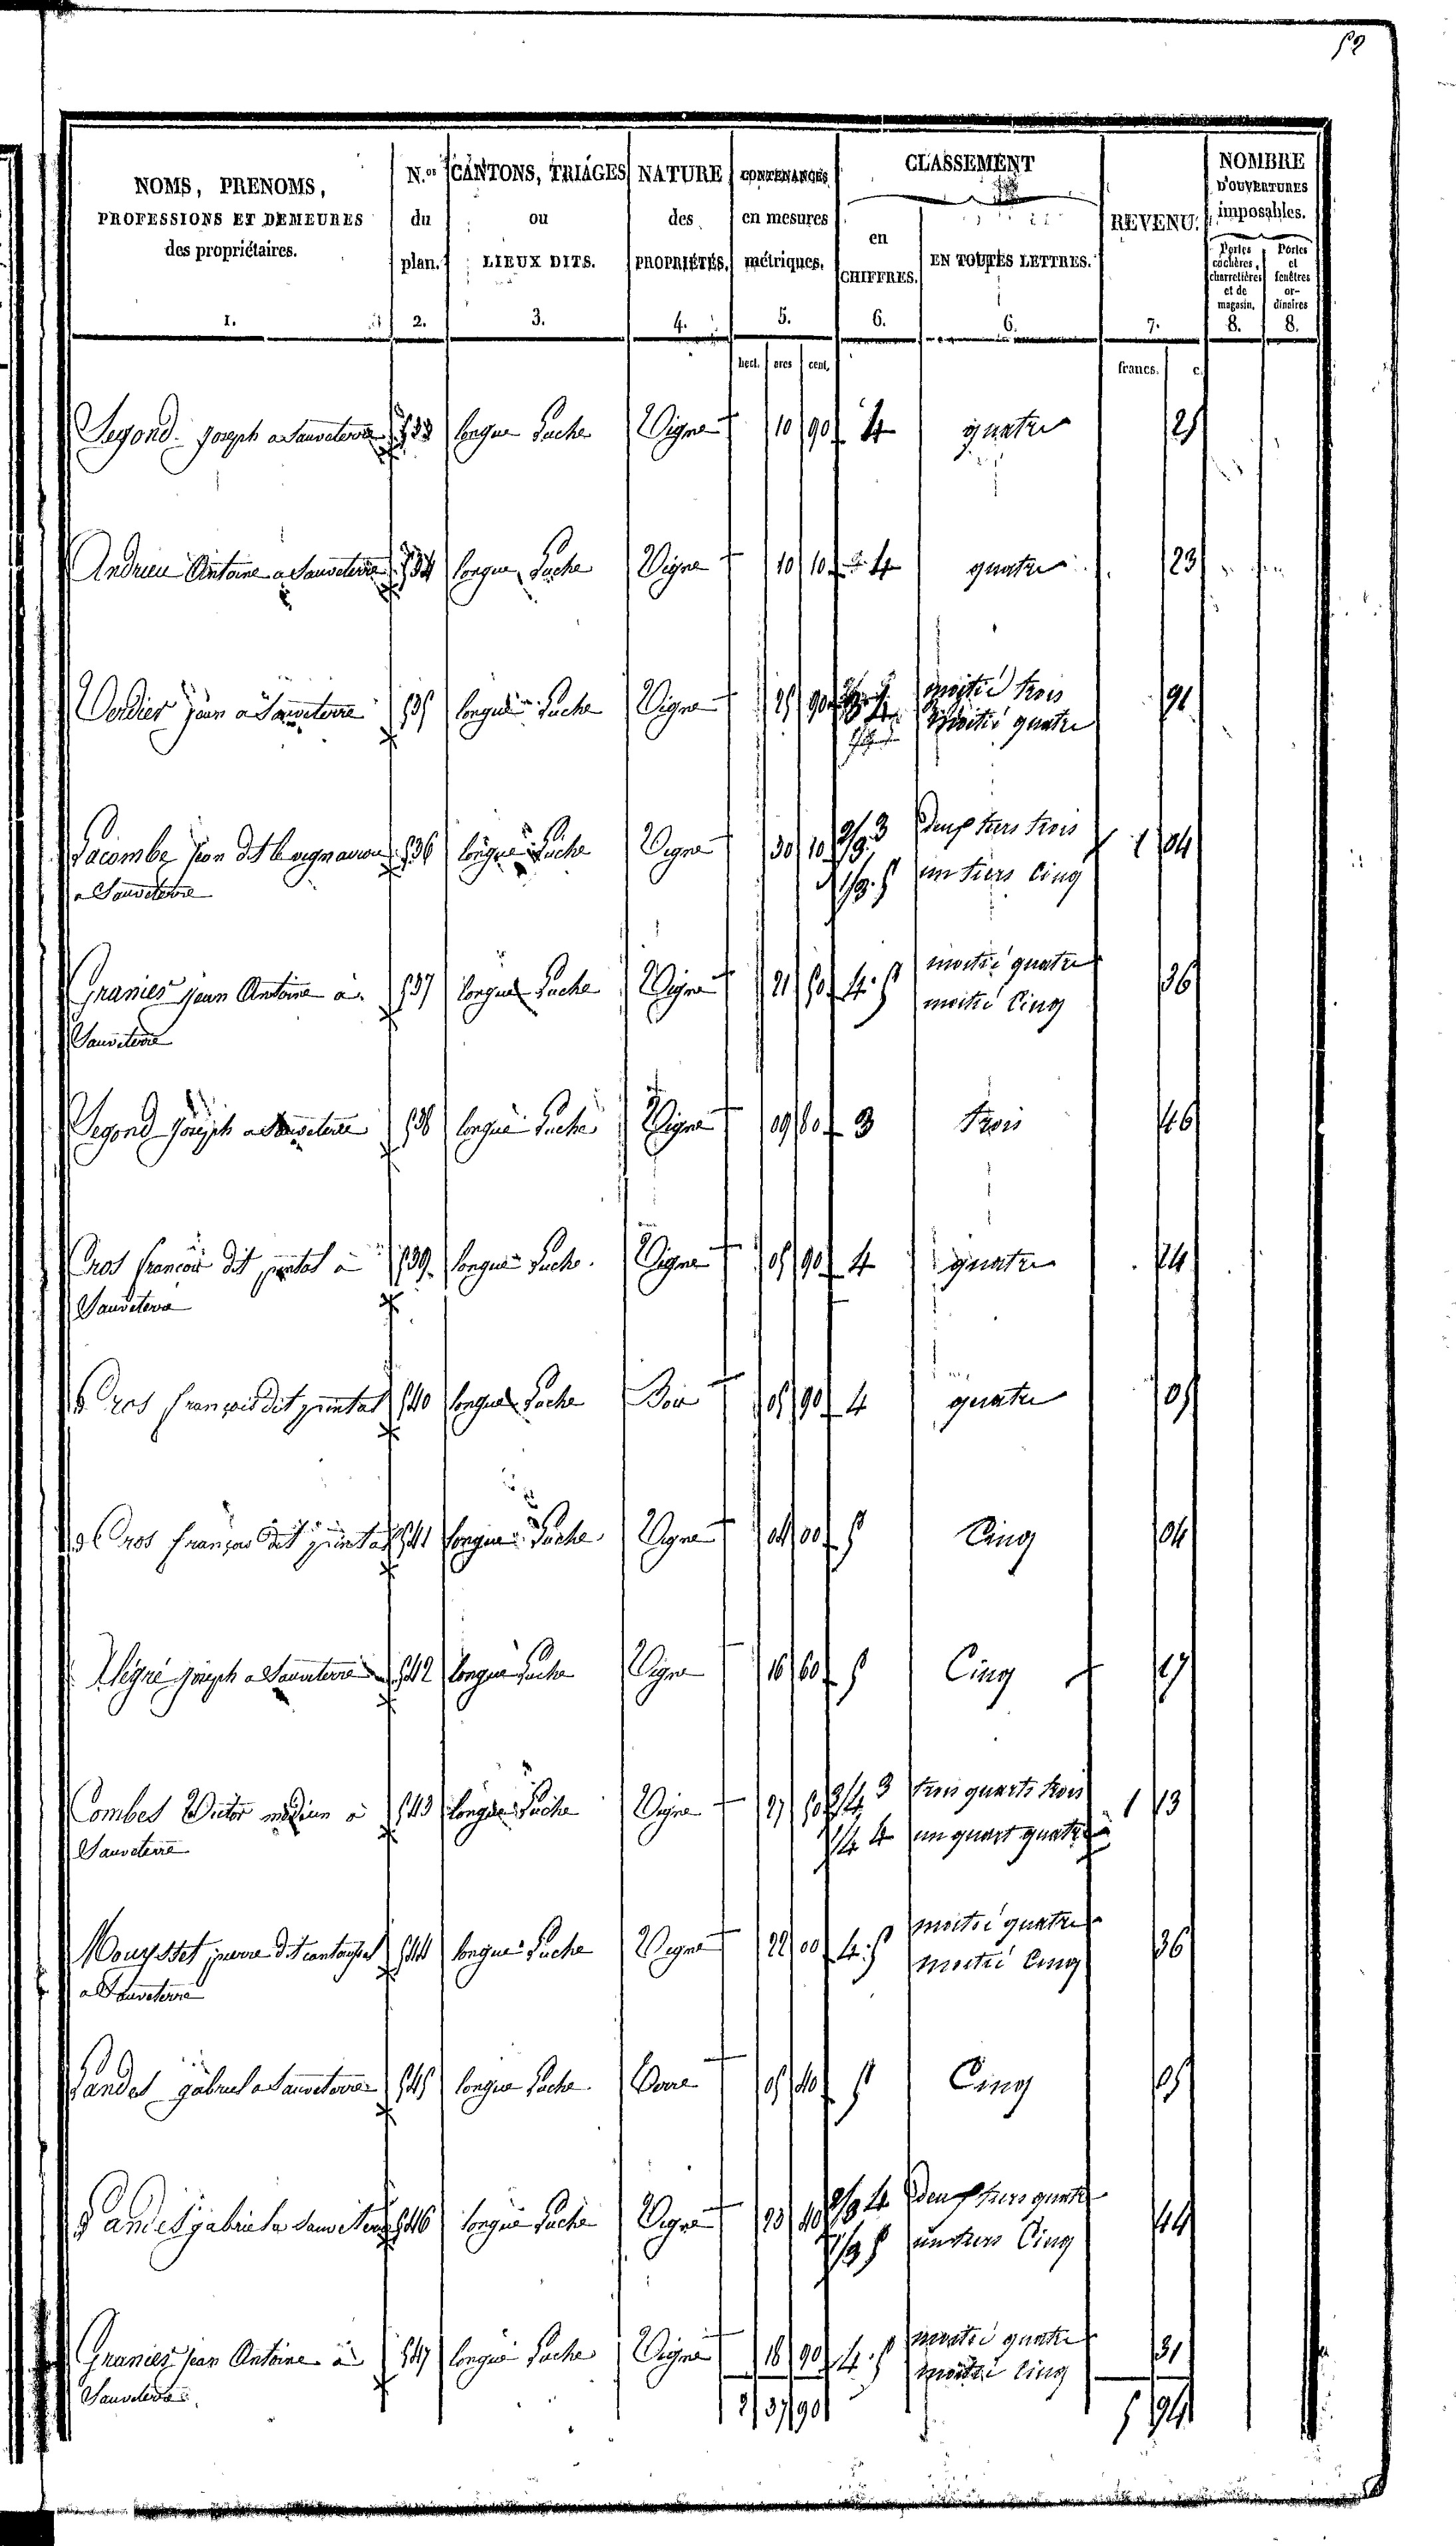 52
NOMS, PRENOMS, PROFESSIONS ET DEMEURES des propriétaires. 1.
N.os du plan. 2.
CANTONS, TRIAGES ou LIEUX DITS. 3.
NATURE des PROPRIÉTÉS. 4.
CONTENANCES en mesures métriques. 5.
CLASSEMENT
en CHIFFRES. 6.
EN TOUTES LETTRES. 6.
REVENU. 7.
NOMBRE D'OUVERTURES imposables.
Portes cochères, charretières et de magasin. 8.
Portes et fenêtres ordinaires 8.
hect. ares cent. francs. c.
Segond Joseph a Sauveterre 533 longue Vigne 10 90 4 quatre 25
Andrieu Antoine a Sauveterre 534 longue Vigne 10 10 4 quatre 23
Verdier jean a Sauveterre 535 longue Vigne 25 90 3 4 moitié trois 91
moitié quatre
Lacombe jean dit le vigneron 536 longue Vigne 30 10 2/3 3 deux tiers trois 1 04
a Sauveterre 1/3 5 un tiers Cinq
Granier jean Antoine a 537 longue Vigne 21 50 4.5 moitié quatre 36
Sauveterre moitié Cinq
Segond Joseph a Sauveterre 538 longue Vigne 09 80 3 trois 46
Cros françois dit a 539 longue Vigne 05 90 4 quatre 14
Sauveterre
Cros françois dit 540 longue Bois 05 90 4 quatre 05
Cros françois dit 541 longue Vigne 04 00 5 Cinq 04
joseph a Sauveterre 542 longue Vigne 16 60 5 Cinq 17
Combes Victor médecin a 543 longue Vigne 27 50 3/4 3 trois quarts trois 1 13
Sauveterre 1/4 4 un quart quatre
Mouysset pierre dit 544 longue Vigne 22 00 4.5 moitié quatre 36
a Sauveterre moitié Cinq
Landes gabriel a Sauveterre 545 longue Terre 05 40 5 Cinq 05
Landes gabriel a Sauveterre 546 longue Vigne 23 40 2/3 4 deux tiers quatre 44
1/3 5 un tiers Cinq
Granier jean Antoine a 547 longue Vigne 18 90 4.5 moitié quatre 31
Sauveterre moitié Cinq
2 37 90 5 94